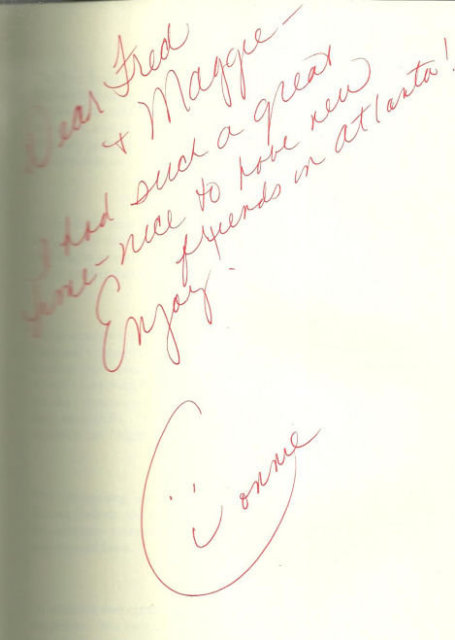 Dear Fred
+ Maggie –
I had such a great
time – nice to have new
friends in Atlanta!
Enjoy!
Connie